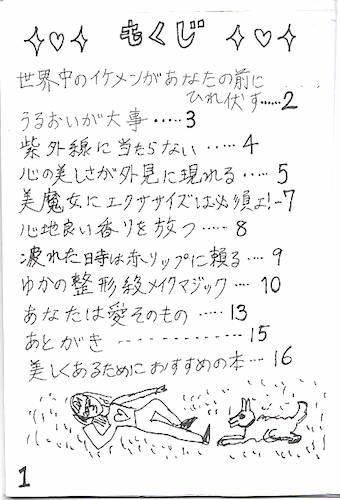 もくじ
世界中のイケメンがあなたの前に
ひれ伏す……2
うるおいが大事……3
紫外線に当たらない……4
心の美しさが外見に現れる……5
美魔女にエクササイズは必須よ!-7
心地良い香りを放つ……8
疲れた日時は赤リップに頼る…9
ゆかの整形級メイクマジック…10
あなたは愛そのもの……13
あとがき-----------15
美しくあるためにおすすめの本…16
1